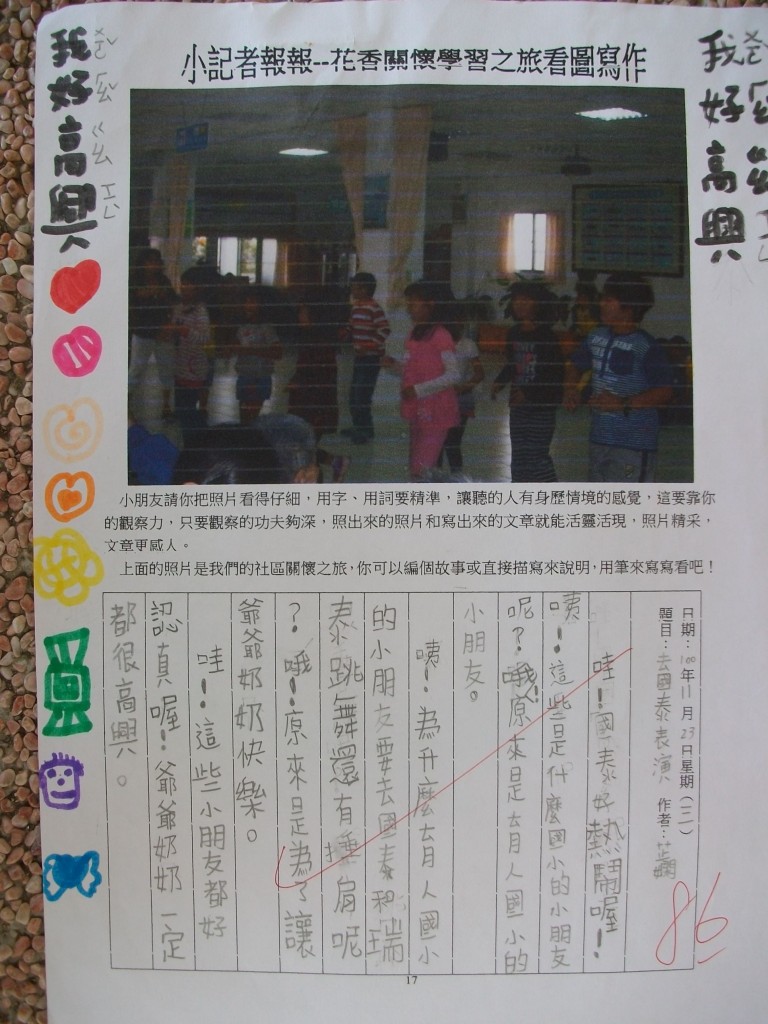 小記者報報--花香關懷學習之旅看圖寫作
我好高興
ㄨㄛˇ ㄏㄠˇ ㄍㄠ ㄒㄧㄥˋ
我好高興
小朋友請你把照片看得仔細，用字、用詞要精準，讓聽的人有身歷情境的感覺，這要靠你
的觀察力，只要觀察的功夫夠深，照出來的照片和寫出來的文章就能活靈活現，照片精采，
文章更感人。
上面的照片是我們的社區關懷之旅，你可以編個故事或直接描寫來說明，用筆來寫寫看吧！
日期：100年11月23日星期（三）
題目：去國泰表演 作者：芷嫻
哇！國泰好熱鬧喔！
咦！這些是什麼國小的小朋友
呢？哦！原來是古月人國小的
小朋友。
咦！為什麼古月人國小
的小朋友要去國泰和瑞
泰跳舞還有捶肩呢
？哦！原來是為了讓
爺爺奶奶快樂。
哇！這些小朋友都好
認真喔！爺爺奶奶一定
都很高興。
86
17